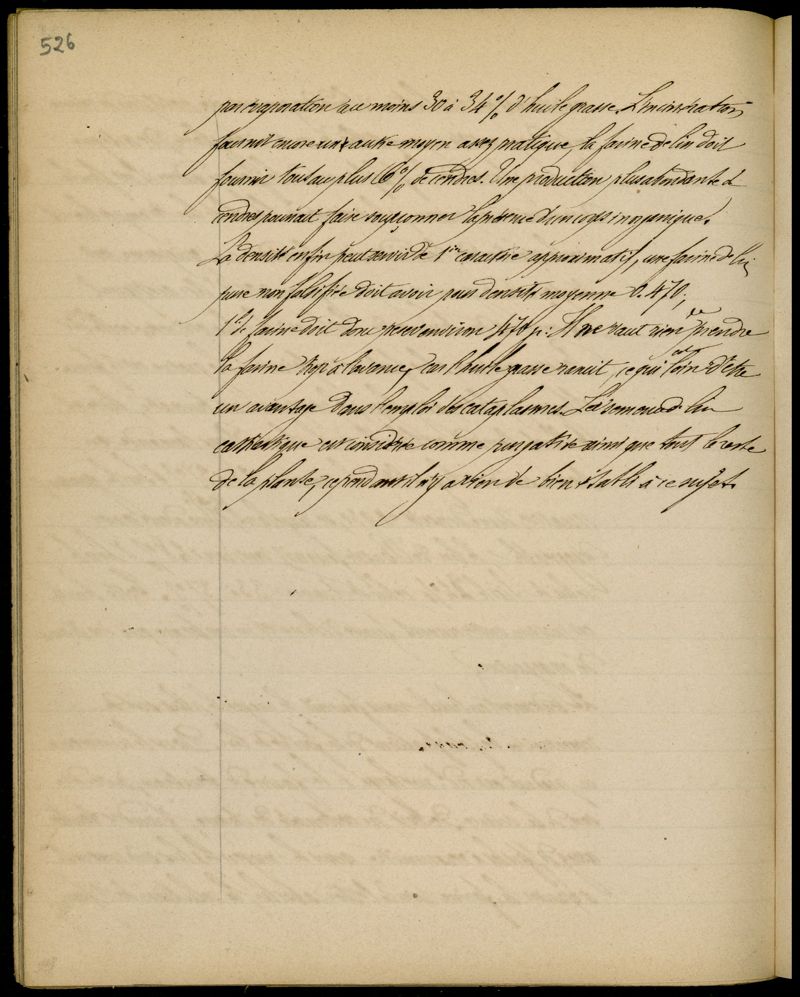 526
par évaporation au moins 30 à 34 % d'huile grasse. L'incinération
fournit encore un autre moyen assez pratique, la farine de lin doit
fournir tout au plus 6 % de cendres. Une production plus abondante de
cendres pourrait faire soupçonner la présence d'un corps inorganique.
La densité enfin peut servir de 1er caractère approximatif, une farine de lin
pure non falsifiée doit avoir pour densité moyenne 0.470;
1 l. de farine doit donc peser environ 470 gr: Il ne vaut rien de prendre
la farine trop à l'avance, car l'huile grasse rancit, ce qui est loin d'être
un avantage dans l'emploi des cataplasmes. La semence de lin
cathartique est considérée comme purgative ainsi que tout le reste
de la plante, cependant il n'y a rien de bien établi à ce sujet.